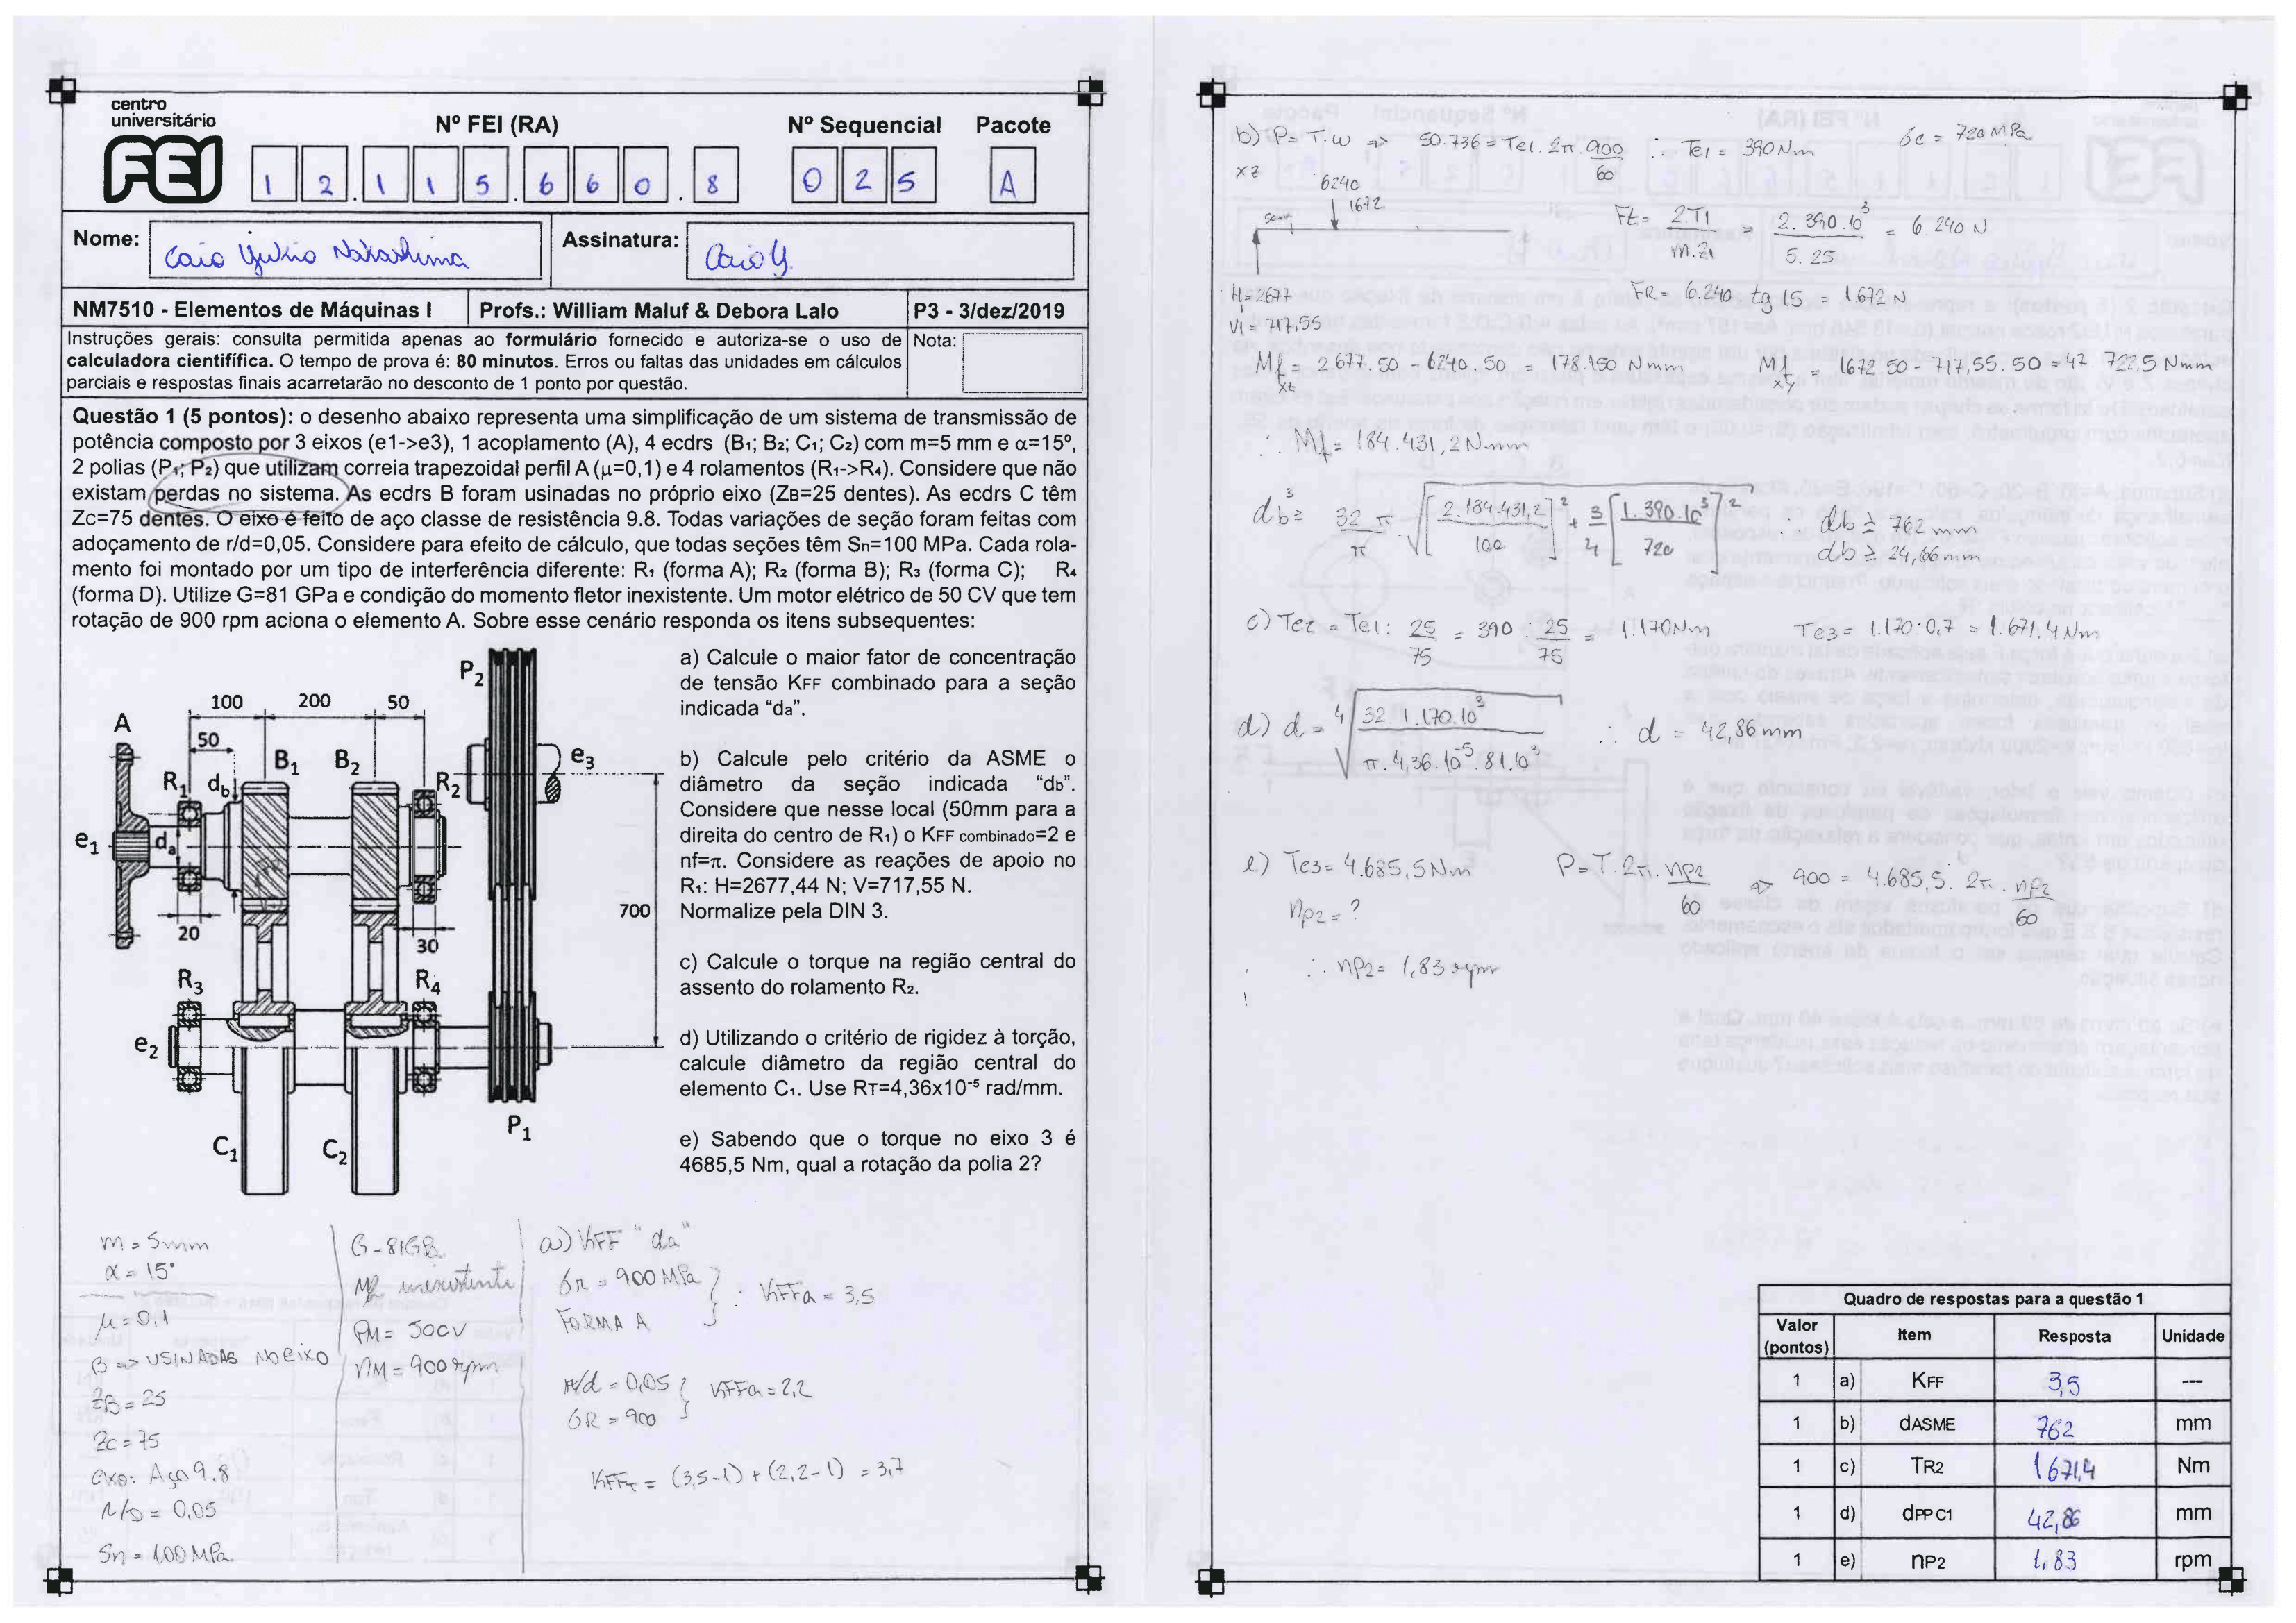 centro
universitário
FEI
Nº FEI (RA)
Nº Sequencial
Pacote
1 2 . 1 1 5 . 6 6 0 . 8
0 2 5
A
Nome:
Caio Yukio Nakashima
Assinatura:
Caio Y.
NM7510 - Elementos de Máquinas I
Profs.: William Maluf & Debora Lalo
P3 - 3/dez/2019
Instruções gerais: consulta permitida apenas ao formulário fornecido e autoriza-se o uso de
calculadora cientifífica. O tempo de prova é: 80 minutos. Erros ou faltas das unidades em cálculos
parciais e respostas finais acarretarão no desconto de 1 ponto por questão.
Nota:
Questão 1 (5 pontos): o desenho abaixo representa uma simplificação de um sistema de transmissão de
potência composto por 3 eixos (e1->e3), 1 acoplamento (A), 4 ecdrs (B1; B2; C1; C2) com m=5 mm e α=15º,
2 polias (P1; P2) que utilizam correia trapezoidal perfil A (µ=0,1) e 4 rolamentos (R1->R4). Considere que não
existam perdas no sistema. As ecdrs B foram usinadas no próprio eixo (ZB=25 dentes). As ecdrs C têm
Zc=75 dentes. O eixo é feito de aço classe de resistência 9.8. Todas variações de seção foram feitas com
adoçamento de r/d=0,05. Considere para efeito de cálculo, que todas seções têm Sn=100 MPa. Cada rola-
mento foi montado por um tipo de interferência diferente: R1 (forma A); R2 (forma B); R3 (forma C); R4
(forma D). Utilize G=81 GPa e condição do momento fletor inexistente. Um motor elétrico de 50 CV que tem
rotação de 900 rpm aciona o elemento A. Sobre esse cenário responda os itens subsequentes:
P2
100 200 50
A
50
B1 B2
R1 db
R2
e3
e1
da
700
20
30
R3
R4
e2
C1
C2
P1
a) Calcule o maior fator de concentração
de tensão KFF combinado para a seção
indicada “da”.
b) Calcule pelo critério da ASME o
diâmetro da seção indicada “db”.
Considere que nesse local (50mm para a
direita do centro de R1) o KFF combinado=2 e
nf=π. Considere as reações de apoio no
R1: H=2677,44 N; V=717,55 N.
Normalize pela DIN 3.
c) Calcule o torque na região central do
assento do rolamento R2.
d) Utilizando o critério de rigidez à torção,
calcule diâmetro da região central do
elemento C1. Use RT=4,36x10-5 rad/mm.
e) Sabendo que o torque no eixo 3 é
4685,5 Nm, qual a rotação da polia 2?
m = 5mm
α = 15°
µ = 0,1
B => USINADAS NO eixo
ZB = 25
Zc = 75
eixo: Aço 9.8
r/D = 0,05
Sn = 100 MPa
G - 81GPa
Mf inexistente
PM = 50CV
nM = 900 rpm
a) KFF "da"
σR = 900 MPa
FORMA A
∴ KFFa = 3,5
r/d = 0,05
σR = 900
KFFa = 2,2
KFFT = (3,5-1) + (2,2-1) = 3,7
b) P = T.ω => 50.736 = Te1 . 2π . 900/60 ∴ Te1 = 390 Nm
σe = 720 MPa
xz
6240
1672
50mm
H = 2677
V1 = 717,55
Ft = 2.T1/m.Z1 = 2.390.10³/5.25 = 6 240 N
FR = 6.240 . tg 15 = 1.672 N
Mfxz = 2.677.50 - 6240.50 = 178.150 Nmm
Mfxy = 1672.50 - 717,55.50 = 47.722,5 Nmm
∴ Mf = 184.431,2 Nmm
db³ ≥ 32.π/π . √[2.184.431,2/100]² + 3/4 [1.390.10³/720]² ∴ db ≥ 762 mm
db ≥ 24,66 mm
c) Te2 = Te1 : 25/75 = 390 : 25/75 = 1.170 Nm
Te3 = 1.170 : 0,7 = 1.671,4 Nm
d) d = ⁴√32.1.170.10³/π.4,36.10-5.81.10³ ∴ d = 42,86 mm
e) Te3 = 4.685,5 Nm
P = T.2π.np2/60 => 900 = 4.685,5 . 2π . np2/60
np2 = ?
∴ np2 = 1,83 rpm
Quadro de respostas para a questão 1
Valor (pontos) Item Resposta Unidade
1 a) KFF 3,5 ---
1 b) dASME 762 mm
1 c) TR2 1671,4 Nm
1 d) dPP C1 42,86 mm
1 e) nP2 1,83 rpm